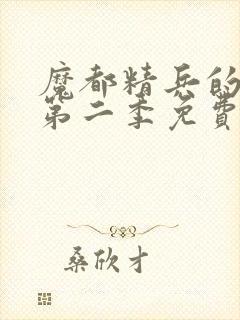 魔都精兵的
第二季免費
桑欣才